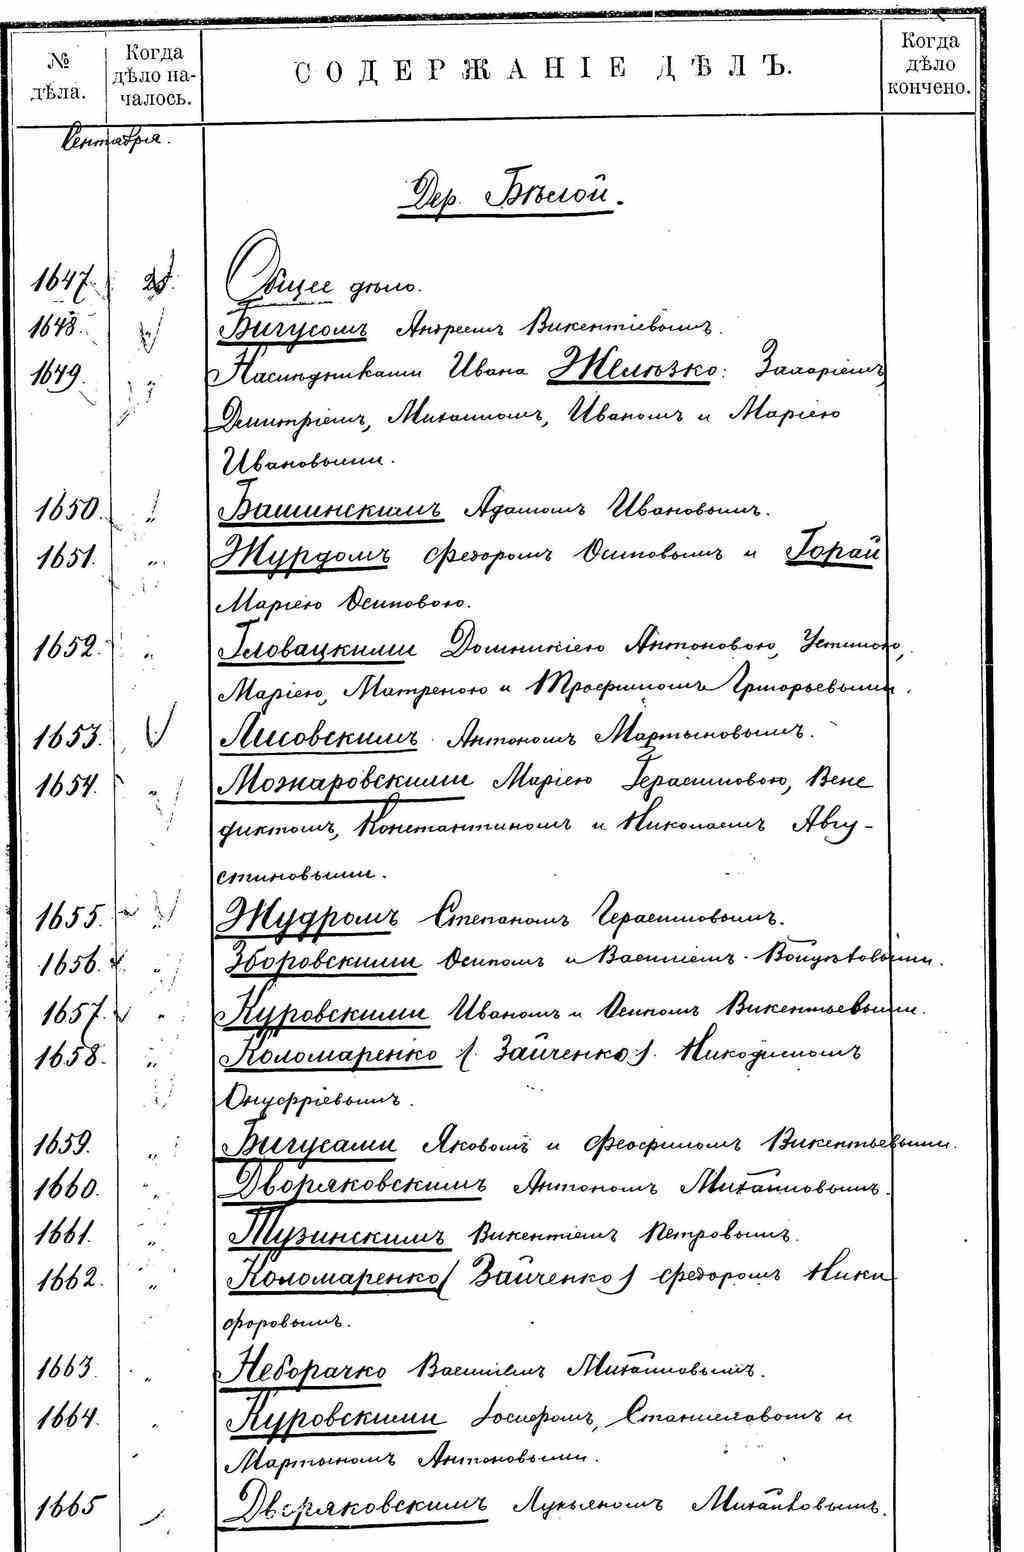 № дѣла.
Когда дѣло началось.
СОДЕРЖАНІЕ ДѢЛЪ.
Когда дѣло кончено.
Сентября.
Дер. Бѣлой.
1647. 25. Общее дѣло.
1648. Бигусомъ Андреемъ Викентіевымъ.
1649. " Наслѣдниками Ивана Желѣзко: Захаріемъ,
Димитріемъ, Михаиломъ, Иваномъ и Маріею
Ивановыми.
1650. " Башинскимъ Адамомъ Ивановымъ.
1651. " Журдомъ Федоромъ Осиповымъ и Горай
Маріею Осиповою.
1652. " Гловацкими Домникіею Антоновою, Устиною,
Маріею, Матреною и Трофимомъ Григорьевыми.
1653. Лисовскимъ Антономъ Мартыновымъ.
1654. " Можаровскими Маріею Герасимовою, Вене
диктомъ, Константиномъ и Николаемъ Авгу-
стиновыми.
1655. " Жудромъ Степаномъ Герасимовымъ.
1656. " Зборовскими Осипомъ и Василіемъ
1657. " Куровскими Иваномъ и Осипомъ Викентьевыми.
1658. " Коломаренко (Зайченко). Никодимомъ
Онуфріевымъ.
1659. " Бигусами Яковомъ и Феофиломъ Викентьевыми.
1660. " Дворяковскимъ Антономъ Михайловымъ.
1661. " Тузинскимъ Викентіемъ Петровымъ.
1662. " Коломаренко (Зайченко) Федоромъ Ники
форовымъ.
1663. " Неборачко Василіемъ Михайловымъ.
1664. " Куровскими Іосифомъ, Станиславомъ и
Мартыномъ Антоновыми.
1665 " Дворяковскимъ Лукьяномъ Михайловымъ.